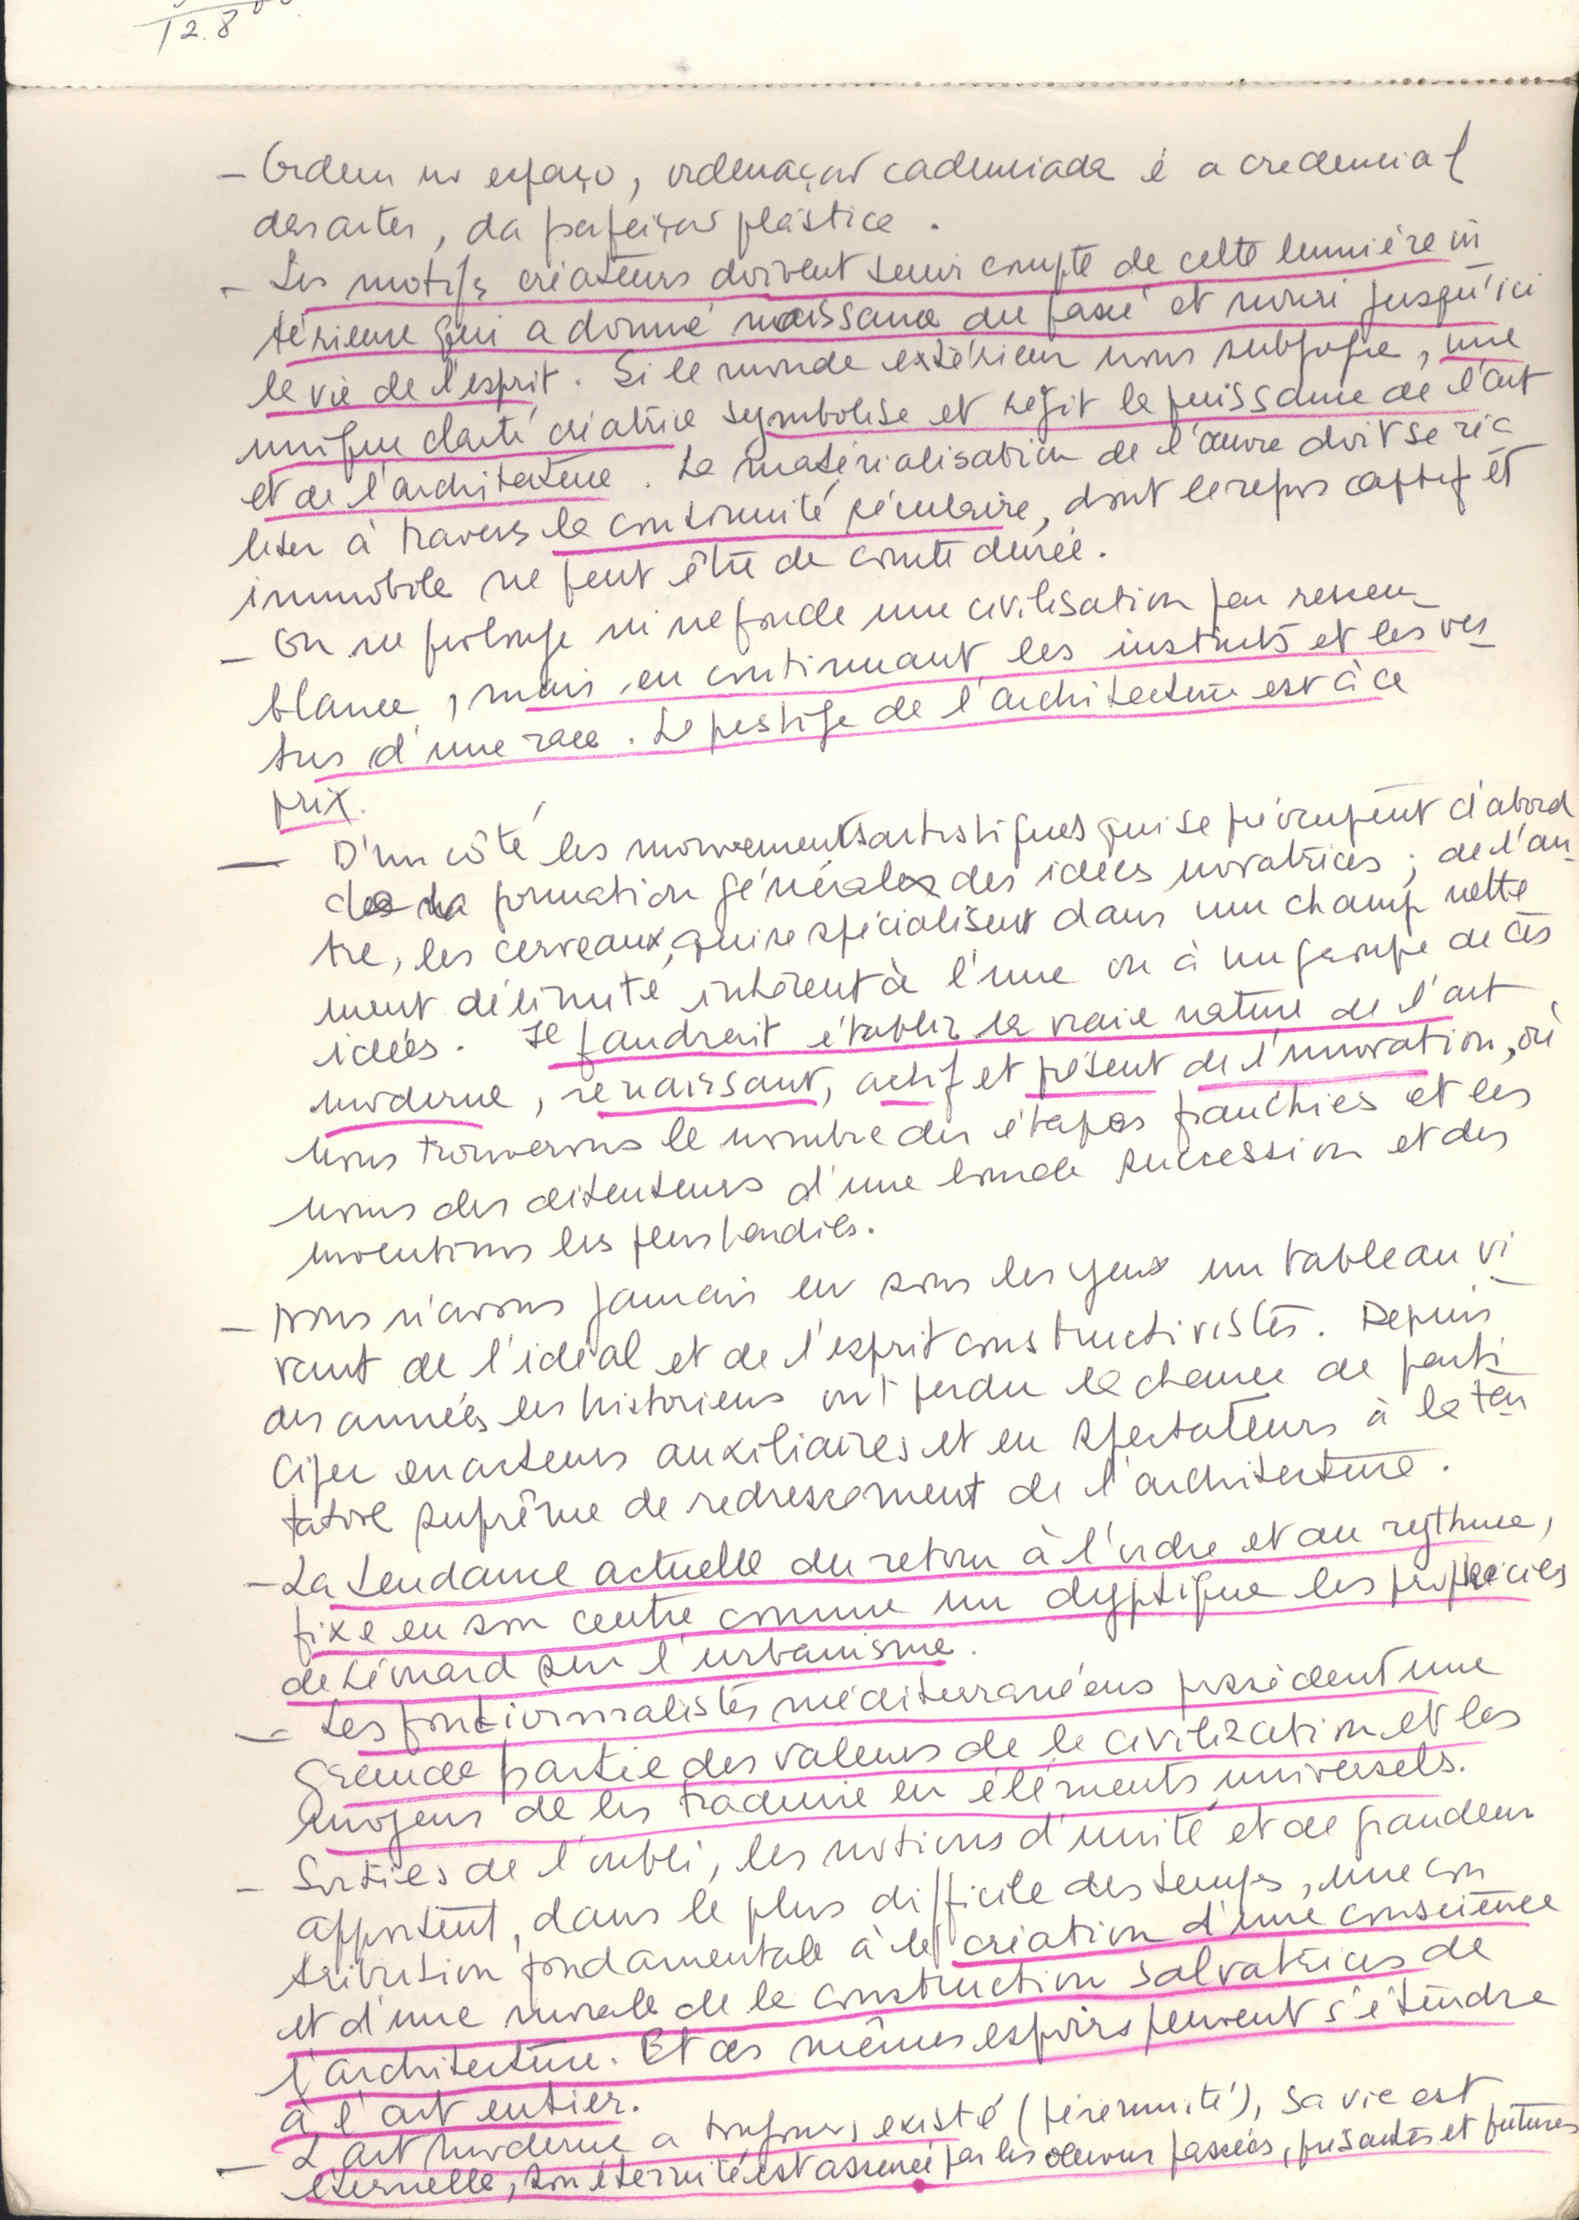 12.8
– Ordem no espaço, ordenação cadenciada é a credencial
das artes, da perfeição plástica.
– Les motifs créateurs doivent tenir compte de cette lumière in
térieure qui a donné naissance au passé et nourri jusqu'ici
la vie de l'esprit. Si le monde extérieur nous subjugue, une
unique clarté créatrice symbolise et régit la puissance de l'art
et de l'architecture. La matérialisation de l'œuvre doit se réa
liser à travers la continuité séculaire, dont le repos captif et
immobile ne peut être de courte durée.
– On ne prolonge ni ne fonde une civilisation par ressem–
blance, mais en continuant les instincts et les ver–
tus d'une race. Le prestige de l'architecture est à ce
prix.
– D'un côté les mouvements artistiques qui se préoccupent d'abord
de la formation générale des idées novatrices; de l'au–
tre, les cerveaux qui se spécialisent dans un champ nette
ment délimité, inhérent à l'une ou à un groupe de ces
idées. Il faudrait établir la vraie nature de l'art
moderne, renaissant, actif et présent de l'innovation, où
nous trouverons le nombre des étapes franchies et les
noms des détenteurs d'une lourde succession et des
inventions les plus hardies.
– Nous n'avons jamais eu sous les yeux un tableau vi–
vant de l'idéal et de l'esprit constructivistes. Depuis
des années les historiens ont perdu la chance de parti–
ciper en acteurs auxiliaires et en spectateurs à la ten–
tative suprême de redressement de l'architecture.
– La tendance actuelle du retour à l'ordre et au rythme,
fixe en son centre comme un dyptique les prophécies
de Léonard sur l'urbanisme.
– Les fonctionnalistes méditerranéens possèdent une
grande partie des valeurs de la civilization et les
moyens de les traduire en éléments universels.
– Sorties de l'oubli, les notions d'unité et de grandeur
apportent, dans le plus difficile des temps, une con
tribution fondamentale à la création d'une conscience
et d'une morale de la construction salvatrices de
l'architecture. Et ces mêmes espoirs peuvent s'étendre
à l'art entier.
– L'art moderne a toujours existé (pérennité), sa vie est
éternelle, son éternité est assurée par les œuvres passées, présentes et futures